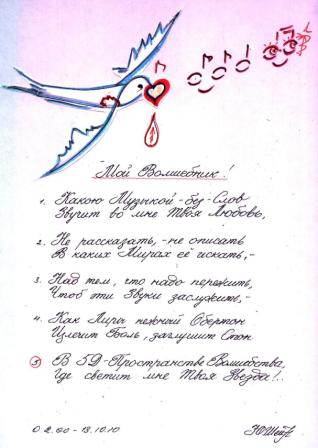 Мой Волшебник!
1. Какою Музыкой-без-Слов
Звучит во мне Твоя Любовь,
2. Не рассказать, - не описать
В каких Мирах её искать, -
3. Над тем, что надо пережить,
Чтоб эти Звуки заслужить, -
4. Как Лиры нежный Обертон
Излечит Боль, заглушит Стон
5. В 5D-Пространстве Волшебства,
Где светит мне Твоя Звезда!..
02.00 - 13.10.10